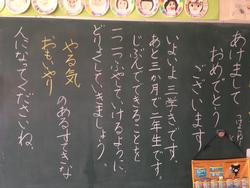 あけまして
おめでとう
ございます
いよいよ 三学きです。
あと三か月で 二年生です。
じぶんでできることを
一つ一つふやしていけるように、
どりょくしていきましょう。
やる気
おもいやり
のあるすてきな
人になってくださいね。